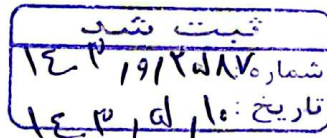 ثبت شد
شماره ۱۴۰۳/۹/۲۵۸۷
تاریخ: ۱۴۰۳/۵/۱۰